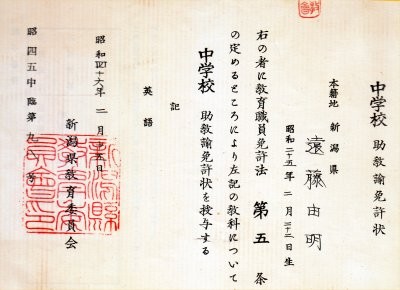 中学校 助教諭免許状
本籍地 新潟県
遠藤由明
昭和二十五年 二月二十二日生
右の者に教育職員免許法 第五条
の定めるところにより左記の教科について
中学校 助教諭免許状を授与する
記
英語
昭和四十六年 二月十五日
新潟県教育委員会
昭四五中臨第九一号